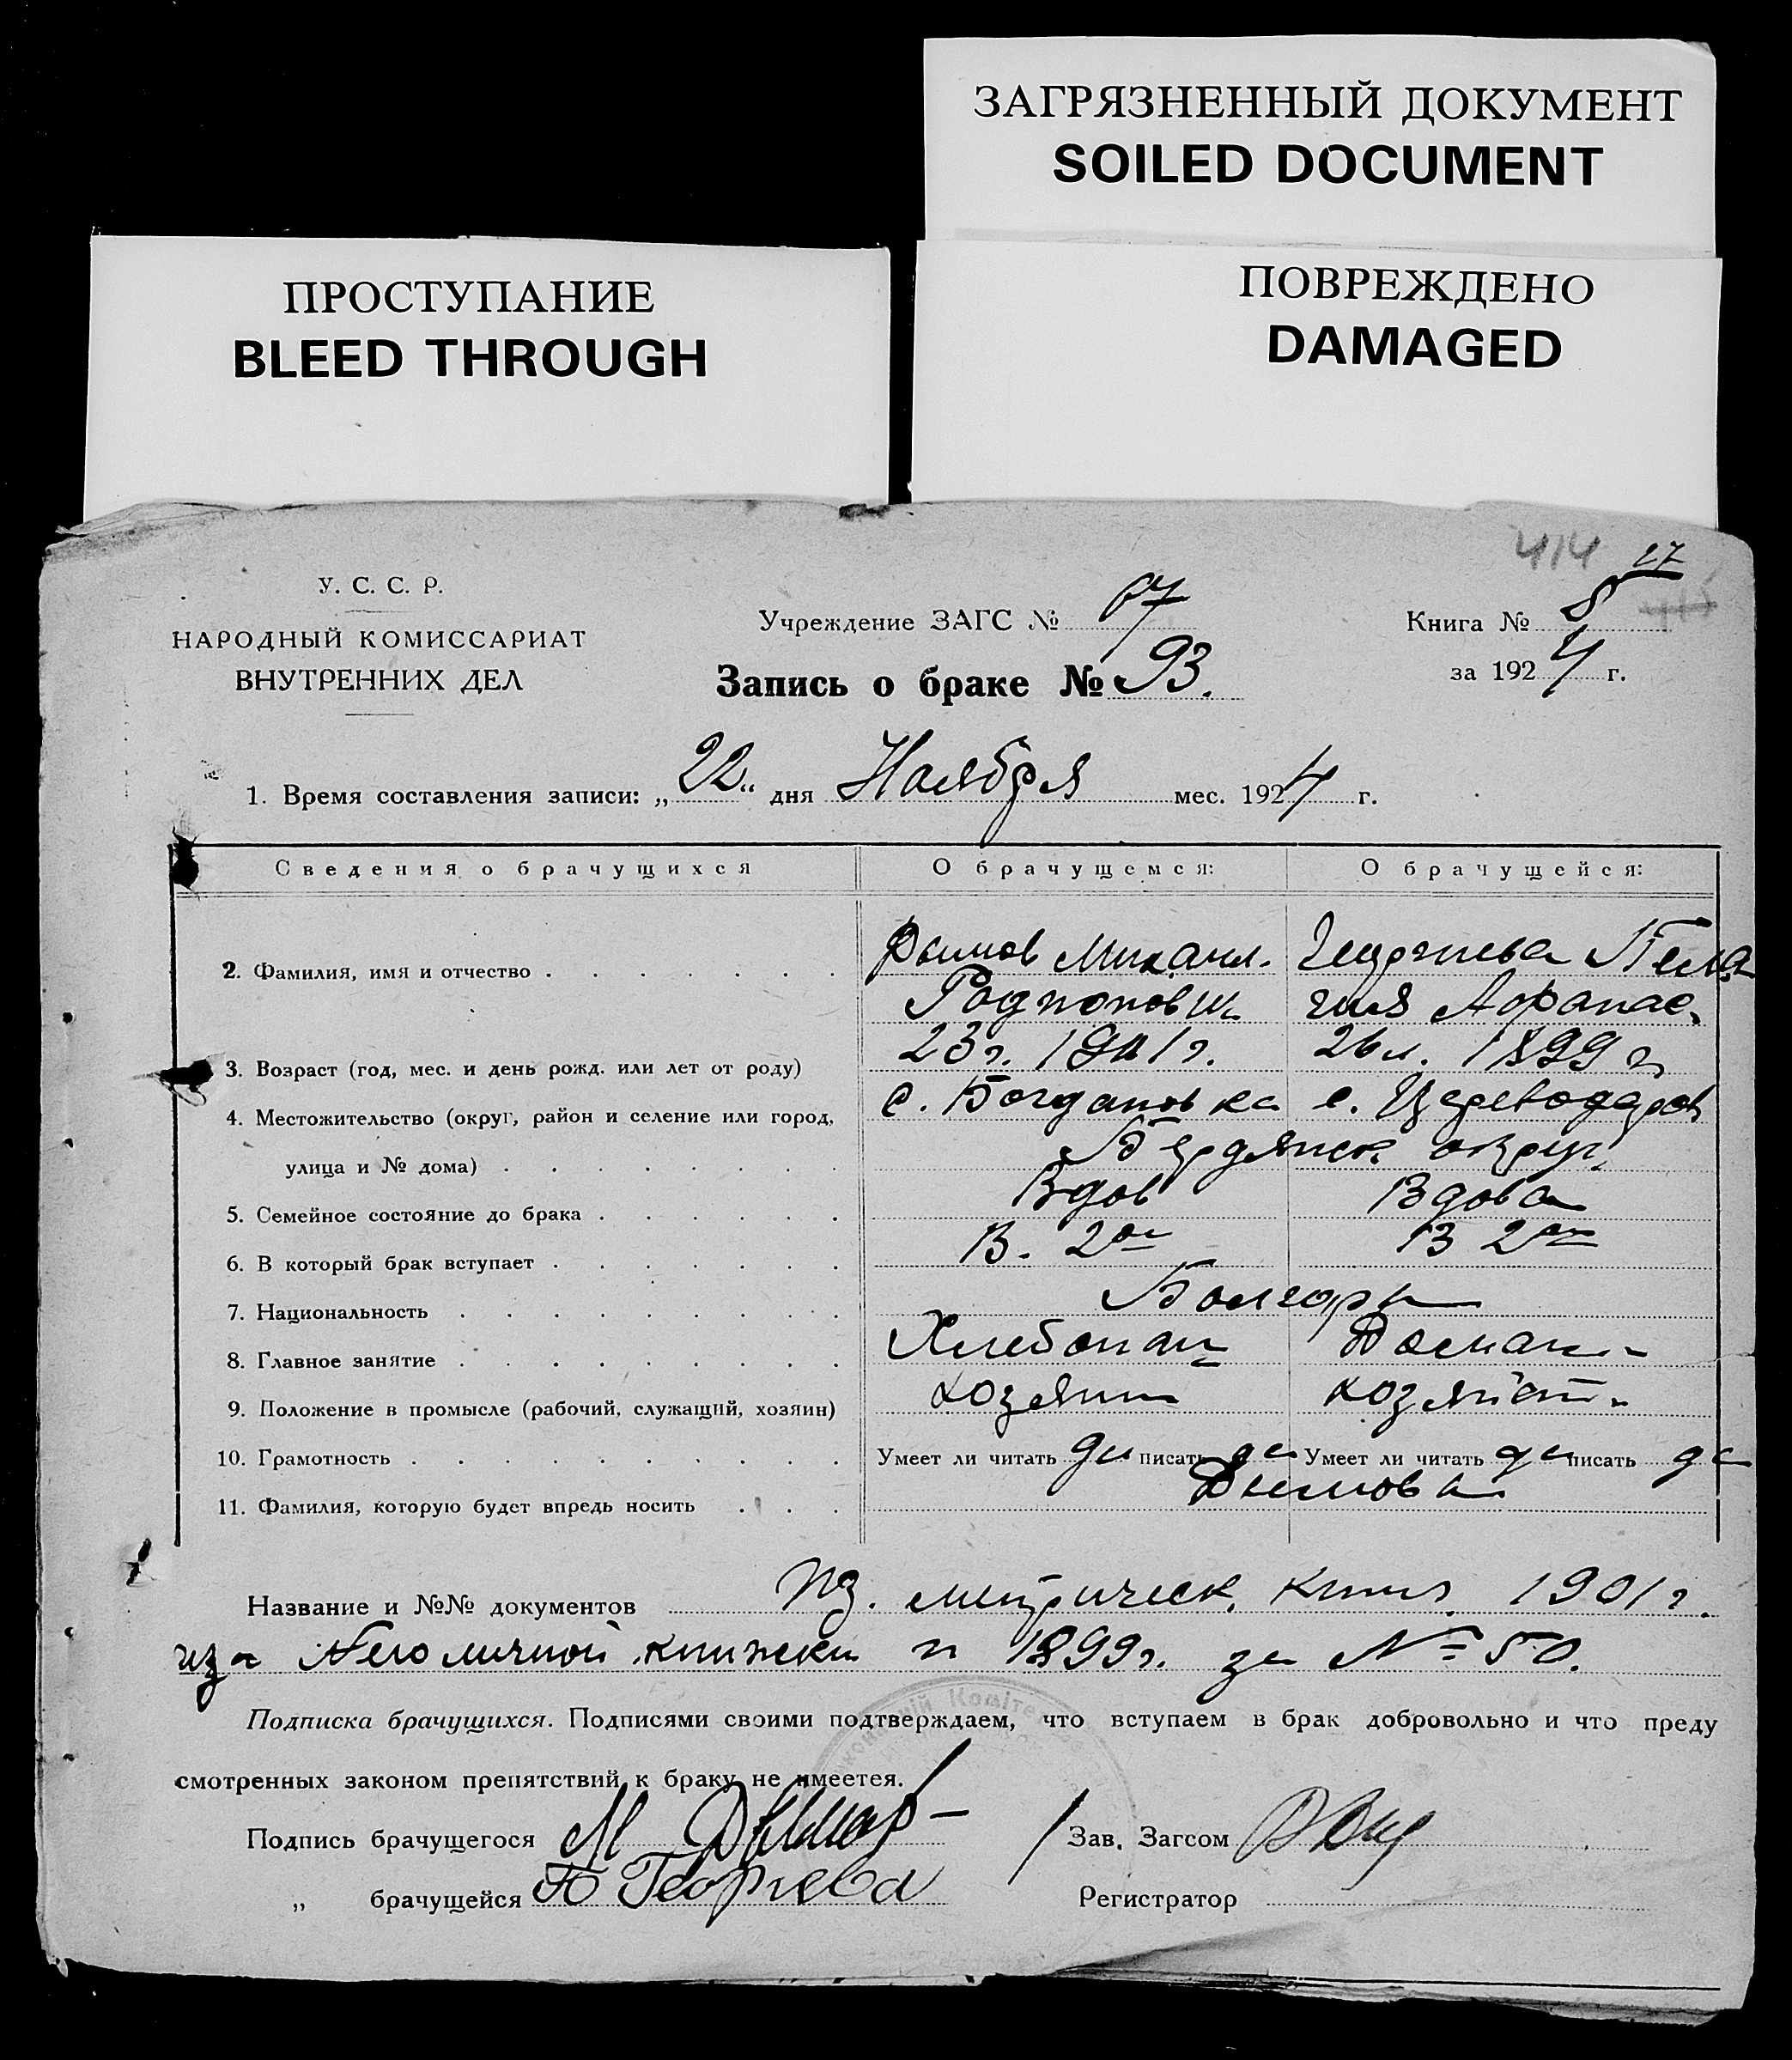 ЗАГРЯЗНЕННЫЙ ДОКУМЕНТ
SOILED DOCUMENT
ПРОСТУПАНИЕ
BLEED THROUGH
ПОВРЕЖДЕНО
DAMAGED
414 27
У. С. С. Р.
НАРОДНЫЙ КОМИССАРИАТ
ВНУТРЕННИХ ДЕЛ
Учреждение ЗАГС № 67
Запись о браке № 93.
Книга № 8
за 1924 г.
1. Время составления записи: „22" дня Ноября мес. 1924 г.
Сведения о брачущихся О брачущемся: О брачущейся:
2. Фамилия, имя и отчество Дымов Михаил. Георгиева Пела
Родионович гия Афанас.
3. Возраст (год, мес. и день рожд. или лет от роду) 23 г. 1901 г. 26 л. 1899 г.
4. Местожительство (округ, район и селение или город, с. Богдановка с. Цареводаров
улица и № дома) Бердянск. округ.
5. Семейное состояние до брака Вдов Вдова
6. В который брак вступает В. 2ой В 2ой
7. Национальность Болгары
8. Главное занятие Хлебопаш Домашн.
9. Положение в промысле (рабочий, служащий, хозяин) хозяин хозяйств.
10. Грамотность Умеет ли читать да писать да Умеет ли читать да писать да
11. Фамилия, которую будет впредь носить Дымовы
Название и №№ документов из. метрическ. книг. 1901 г.
личной книжки 1899 г. за № 50.
Подписка брачущихся. Подписями своими подтверждаем, что вступаем в брак добровольно и что преду
смотренных законом препятствий к браку не имеетея.
Подпись брачущегося М Дымов Зав. Загсом
„ брачущейся П Георгиева Регистратор